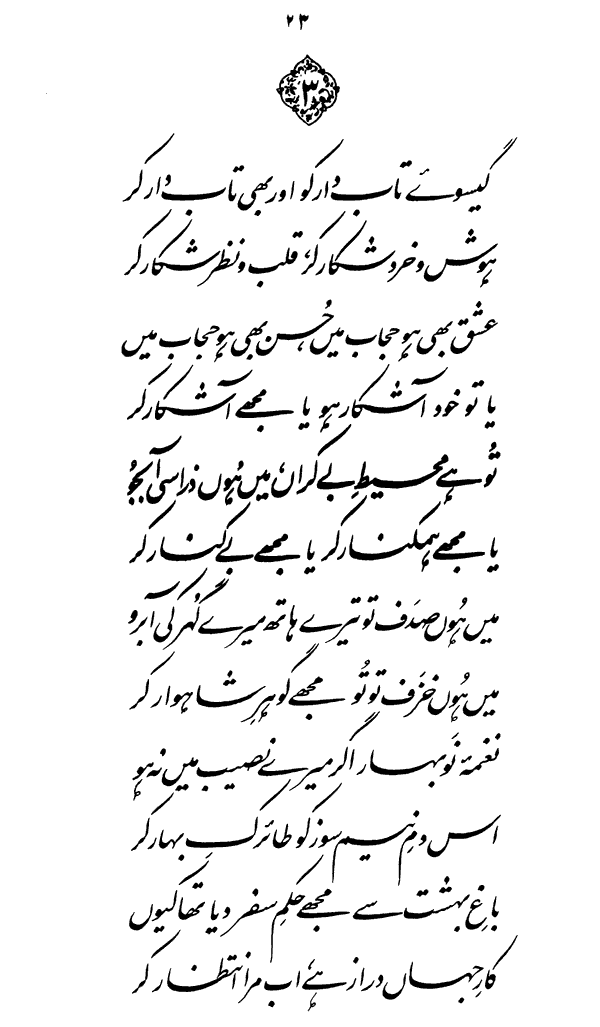 ۲۳
۳
گیسوئے تاب دار کو اور بھی تاب دار کر
ہوش و خرد شکار کر، قلب و نظر شکار کر
عشق بھی ہو حجاب میں، حُسن بھی ہو حجاب میں
یا تو خود آشکار ہو یا مجھے آشکار کر
تُو ہے محیطِ بے کراں، میں ہُوں ذرا سی آبجُو
یا مجھے ہمکنار کر یا مجھے بے کنار کر
میں ہُوں صدَف تو تیرے ہاتھ میرے گُہر کی آبرو
میں ہُوں خزَف تو تُو مجھے گوہرِ شاہوار کر
نغمۂ نَوبہار اگر میرے نصیب میں نہ ہو
اس دمِ نیم سوز کو طائرکِ بہار کر
باغِ بہشت سے مجھے حکمِ سفر دیا تھا کیوں
کارِ جہاں دراز ہے، اب مرا انتظار کر